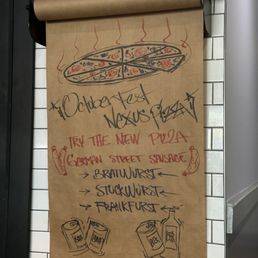 Octoberfest
Nexus Pizza!
TRY THE NEW PIZZA
GERMAN STREET SAUSAGE
BRATWURST
STUCKWURST
FRANKFURST